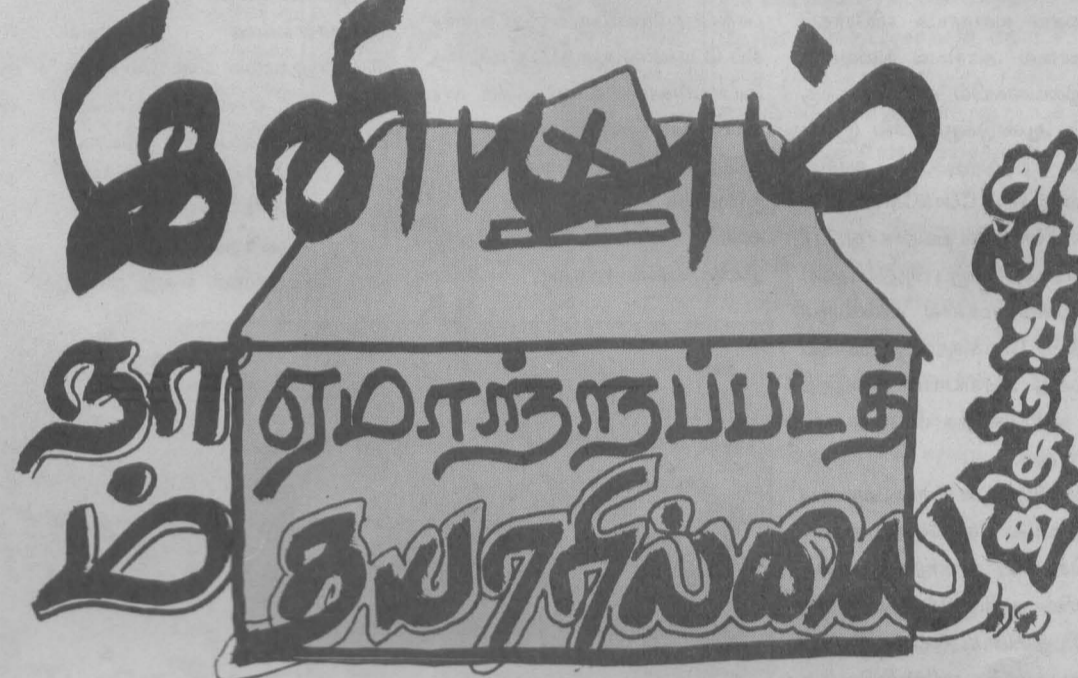 இனியும்
நாம்
ஏமாற்றப்படத்
தயாரில்லை..
அரவிந்தன்